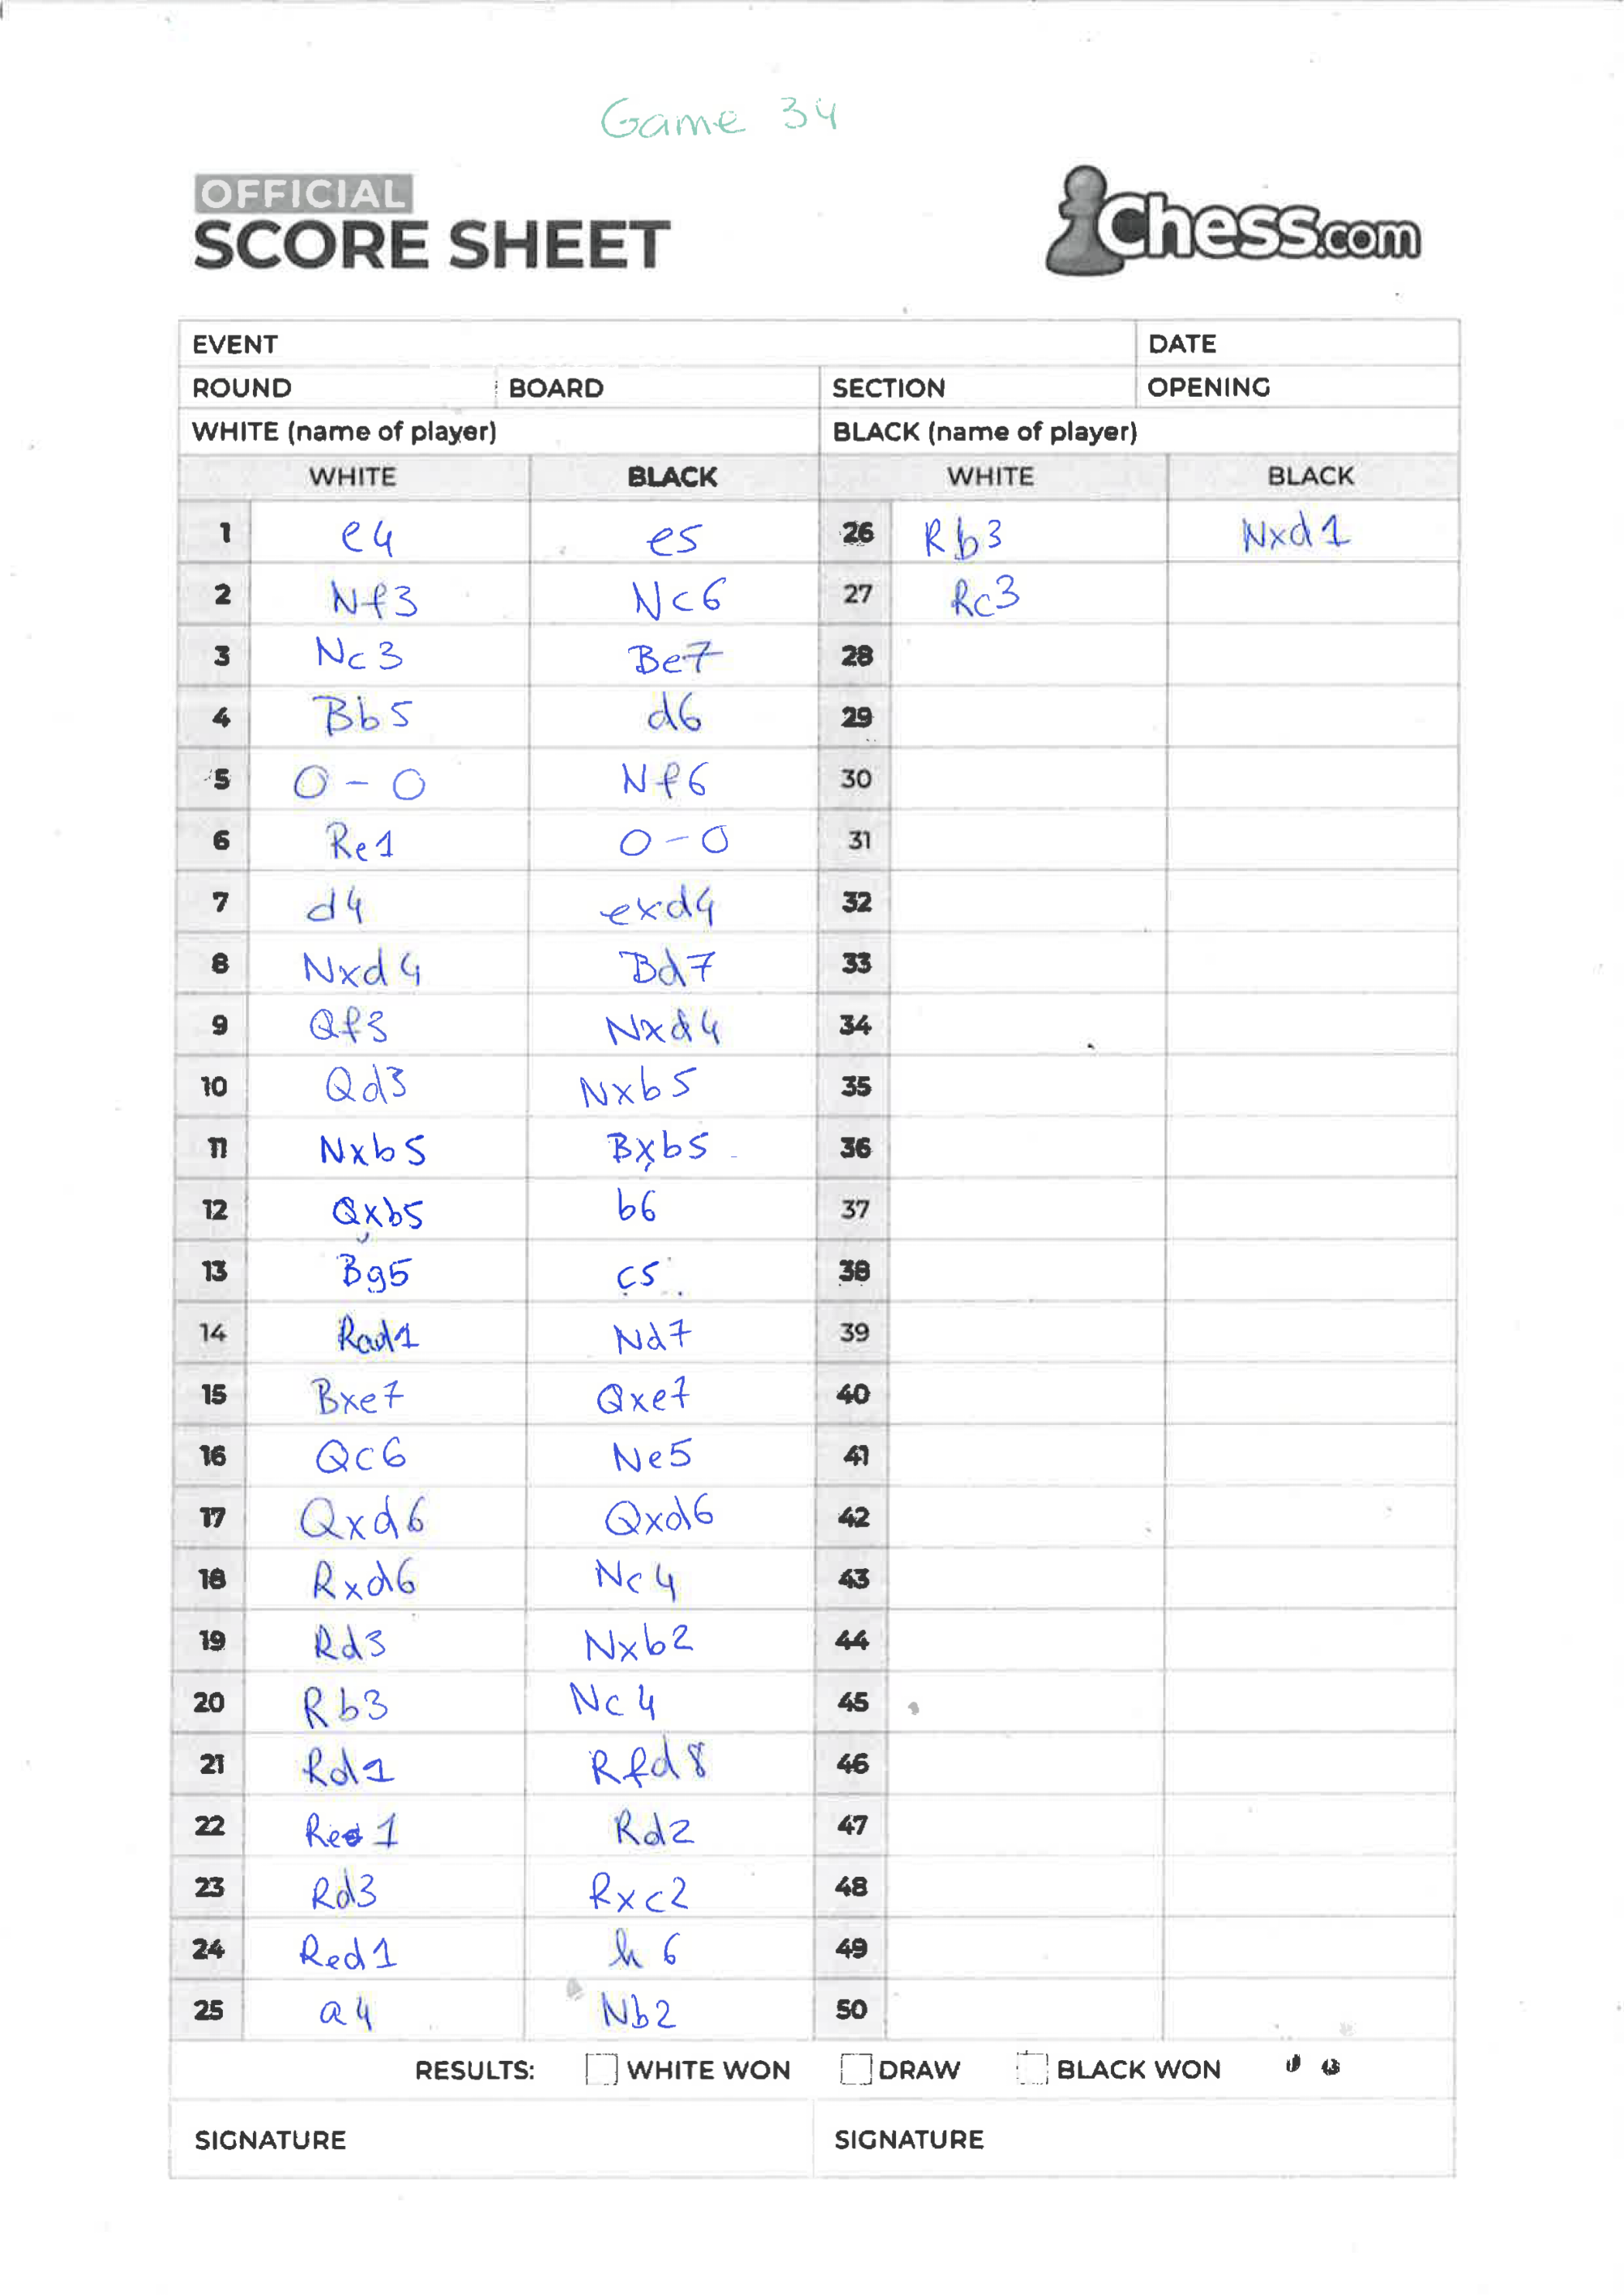 Game 34
OFFICIAL
SCORE SHEET
Chess.com
EVENT DATE
ROUND BOARD SECTION OPENING
WHITE (name of player) BLACK (name of player)
WHITE BLACK WHITE BLACK
1 e4 e5 26 Rb3 Nxd1
2 Nf3 Nc6 27 Rc3
3 Nc3 Be7 28
4 Bb5 d6 29
5 O-O Nf6 30
6 Re1 O-O 31
7 d4 exd4 32
8 Nxd4 Bd7 33
9 Qf3 Nxd4 34
10 Qd3 Nxb5 35
11 Nxb5 Bxb5 36
12 Qxb5 b6 37
13 Bg5 c5 38
14 Rad1 Nd7 39
15 Bxe7 Qxe7 40
16 Qc6 Ne5 41
17 Qxd6 Qxd6 42
18 Rxd6 Nc4 43
19 Rd3 Nxb2 44
20 Rb3 Nc4 45
21 Rd1 Rfd8 46
22 Re1 Rd2 47
23 Rd3 Rxc2 48
24 Red1 h6 49
25 a4 Nb2 50
RESULTS: WHITE WON DRAW BLACK WON
SIGNATURE SIGNATURE